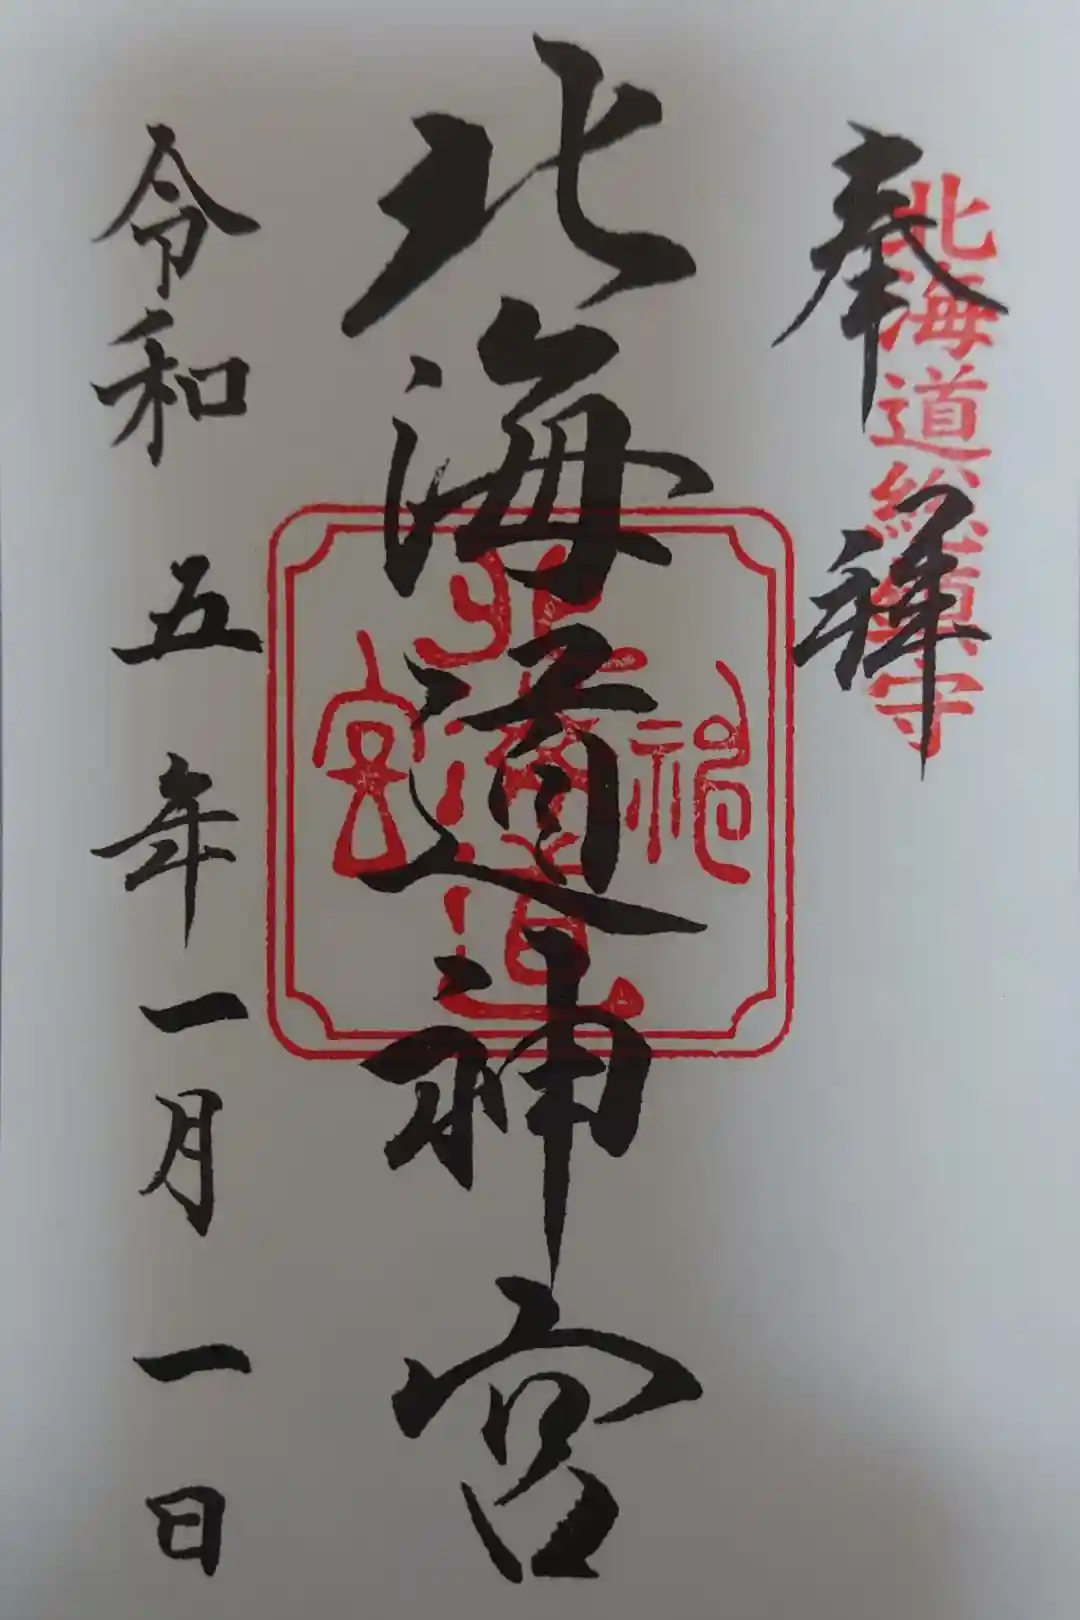 北海道総鎮守
奉拝
北海道神宮
令和五年一月一日